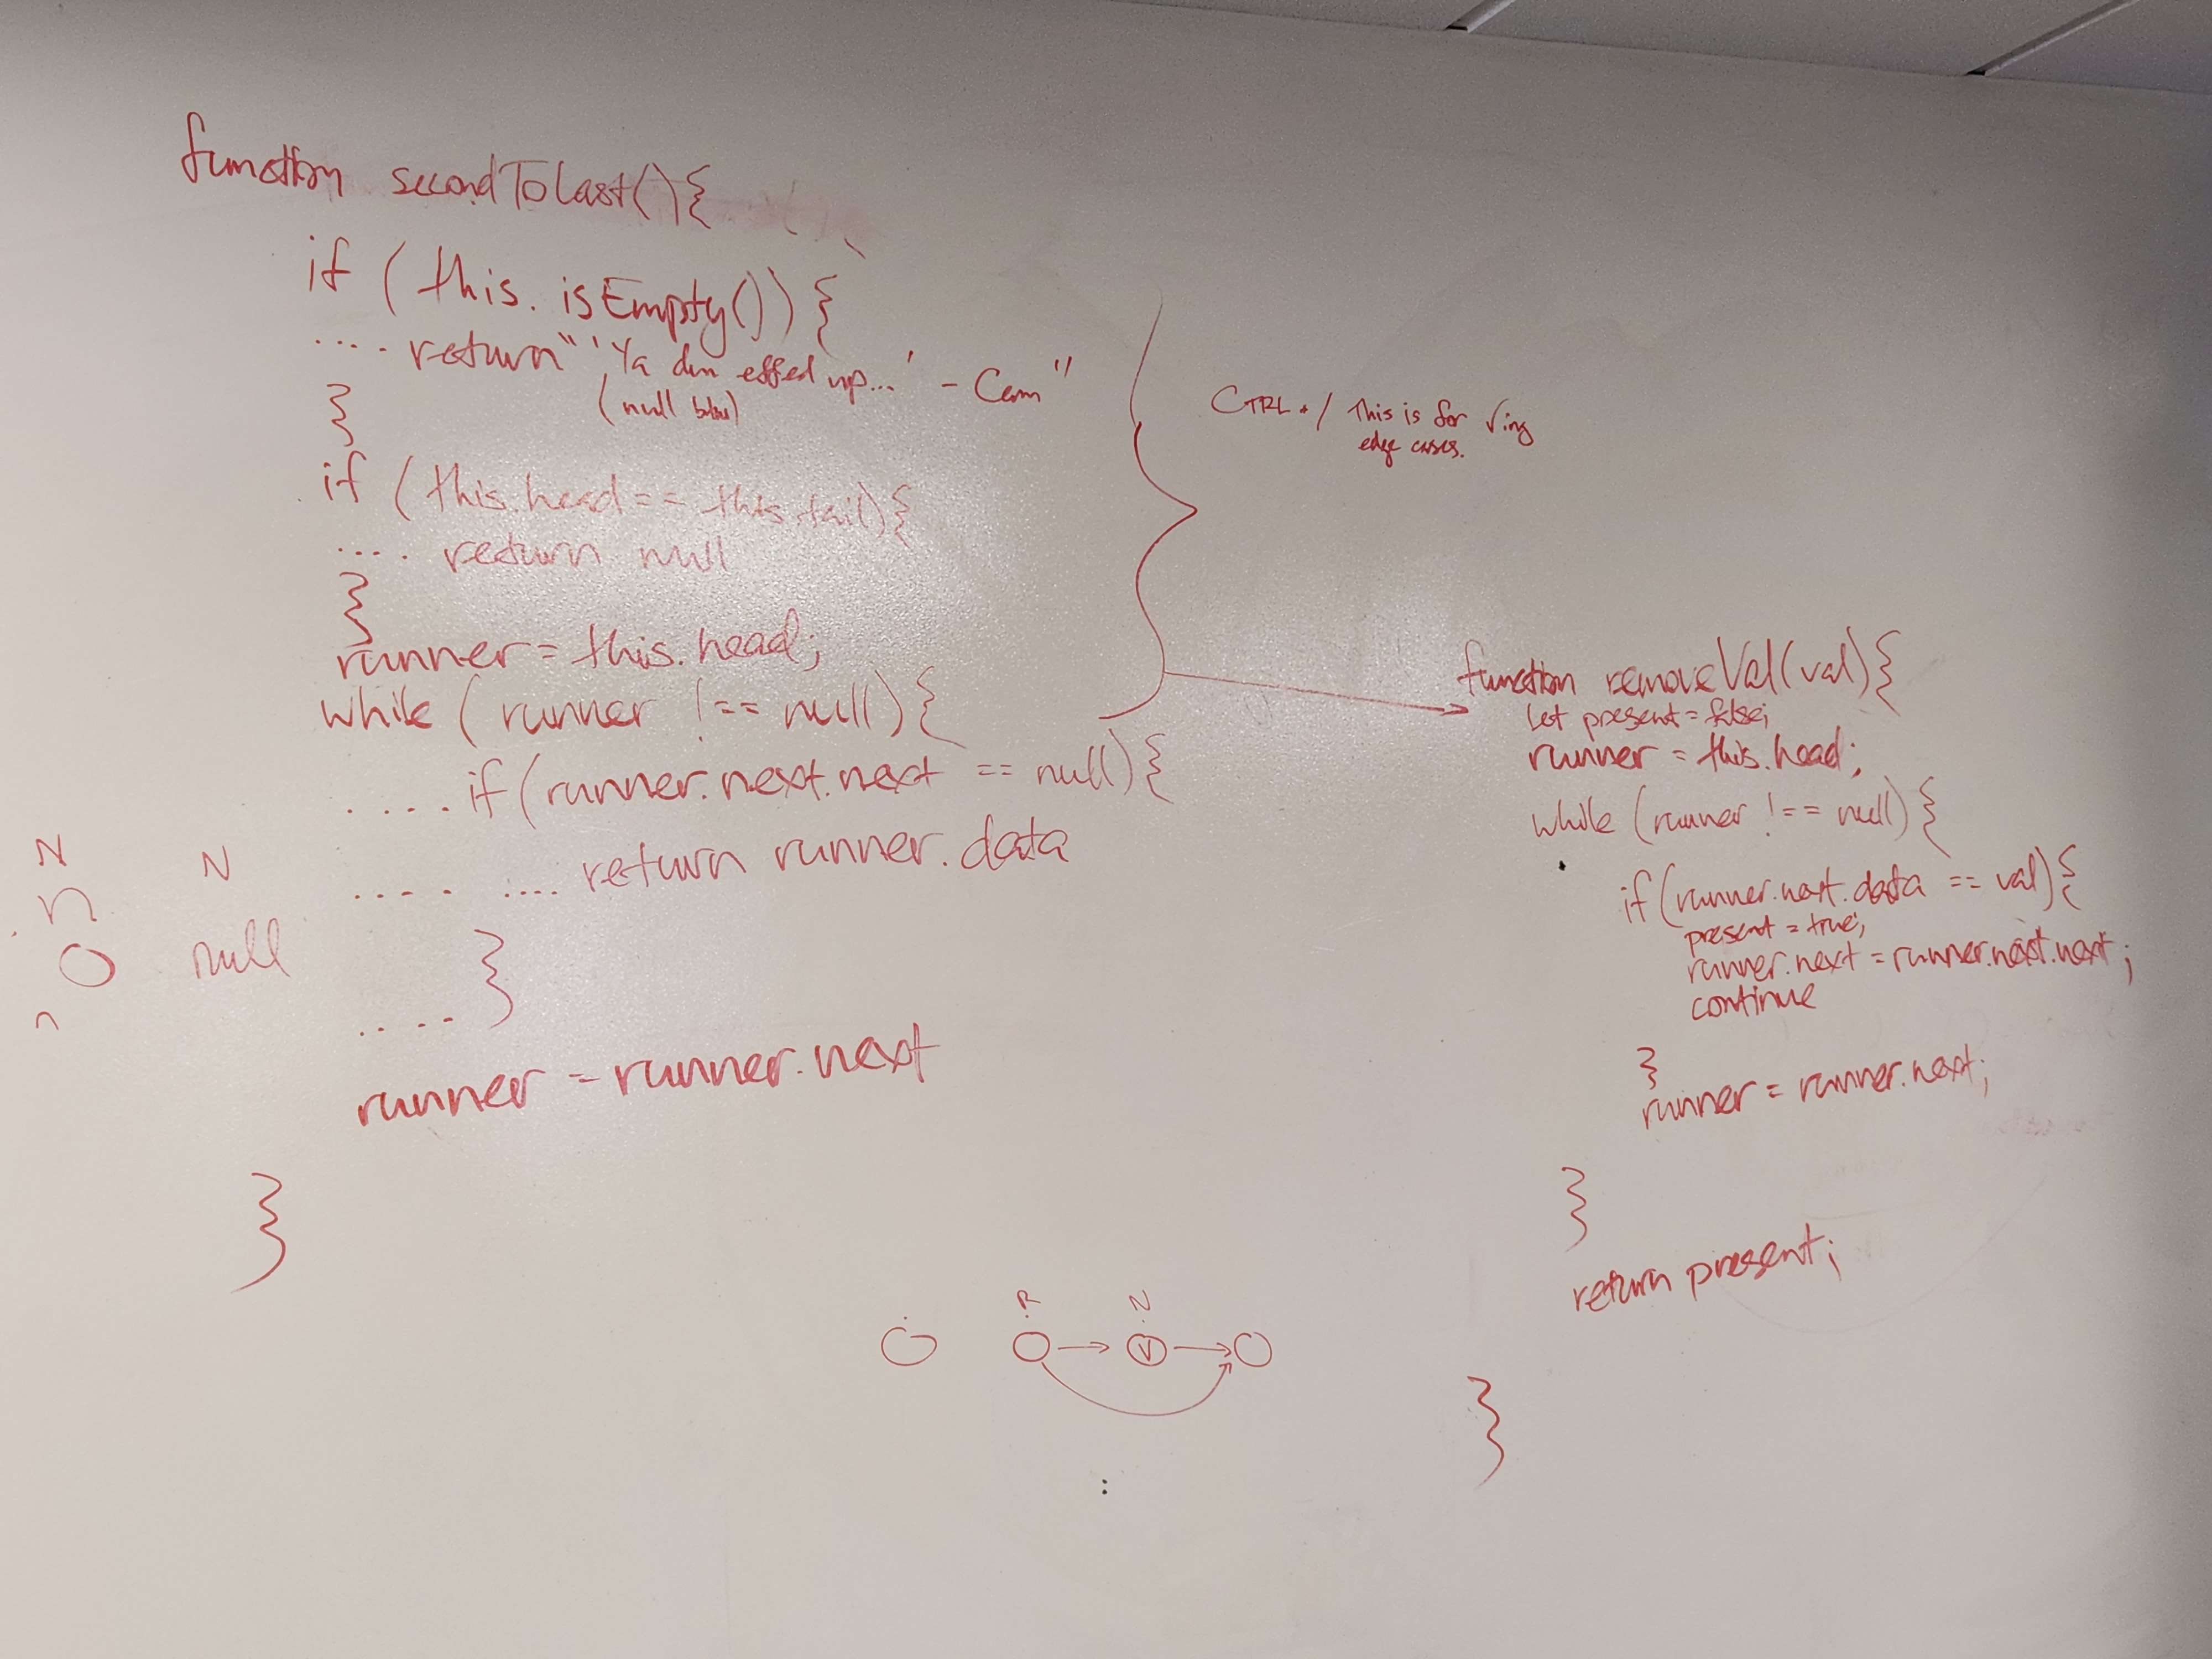 function secondToLast(){
if (this.isEmpty()){
.... return "'Ya dun effed up...' - Cam"
(null below)
}
if (this.head == this.tail){
.... return null
}
runner = this.head;
while (runner !== null){
.... if (runner.next.next == null){
.... .... return runner.data
.... }
runner = runner.next
}
N N
n
O null
n
CTRL + / This is for √ing
edge cases.
function removeVal(val){
let present = false;
runner = this.head;
while (runner !== null){
if (runner.next.data == val){
present = true;
runner.next = runner.next.next;
continue
}
runner = runner.next;
}
return present;
}
R N
V